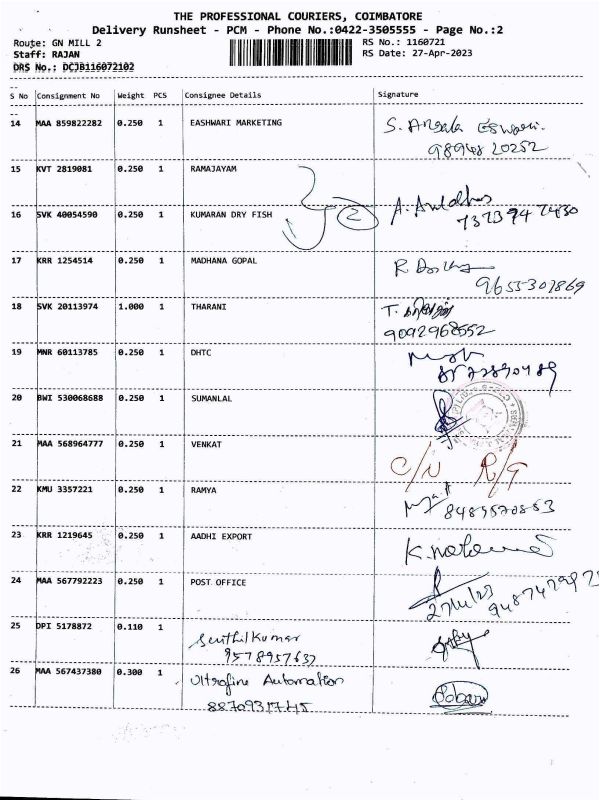 THE PROFESSIONAL COURIERS, COIMBATORE
Delivery Runsheet - PCM - Phone No.:0422-3505555 - Page No.:2
Route: GN MILL 2
RS No.: 1160721
Staff: RAJAN
RS Date: 27-Apr-2023
DRS No.: DCJB116072102
S No Consignment No Weight PCS Consignee Details Signature
14 MAA 859822282 0.250 1 EASHWARI MARKETING S. Angala Eswari.
98948 20252
15 KVT 2819081 0.250 1 RAMAJAYAM
16 SVK 40054590 0.250 1 KUMARAN DRY FISH 2 A.
17 KRR 1254514 0.250 1 MADHANA GOPAL R
9655307869
18 SVK 20113974 1.000 1 THARANI T.
9092968552
19 MNR 60113785 0.250 1 DHTC
20 BWI 530068688 0.250 1 SUMANLAL
21 MAA 568964777 0.250 1 VENKAT C/N R/T
22 KMU 3357221 0.250 1 RAMYA
8489570863
23 KRR 1219645 0.250 1 AADHI EXPORT
24 MAA 567792223 0.250 1 POST OFFICE
25 DPI 5178872 0.110 1 Senthilkumar
9578957637
26 MAA 567437380 0.300 1 Ultrafine Automation
8870931745